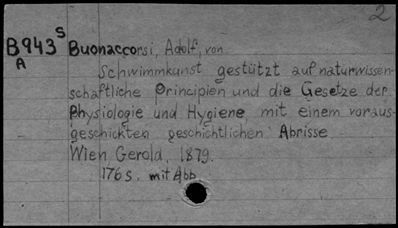 2
B943 S Buonaccorsi, Adolf, von
A
Schwimmkunst gestützt auf naturwissen-
schaftliche Principien und die Gesetze der
Physiologie und Hygiene, mit einem voraus-
geschickten geschichtlichen Abrisse.
Wien, Gerold, 1879.
176 s. mit Abb.